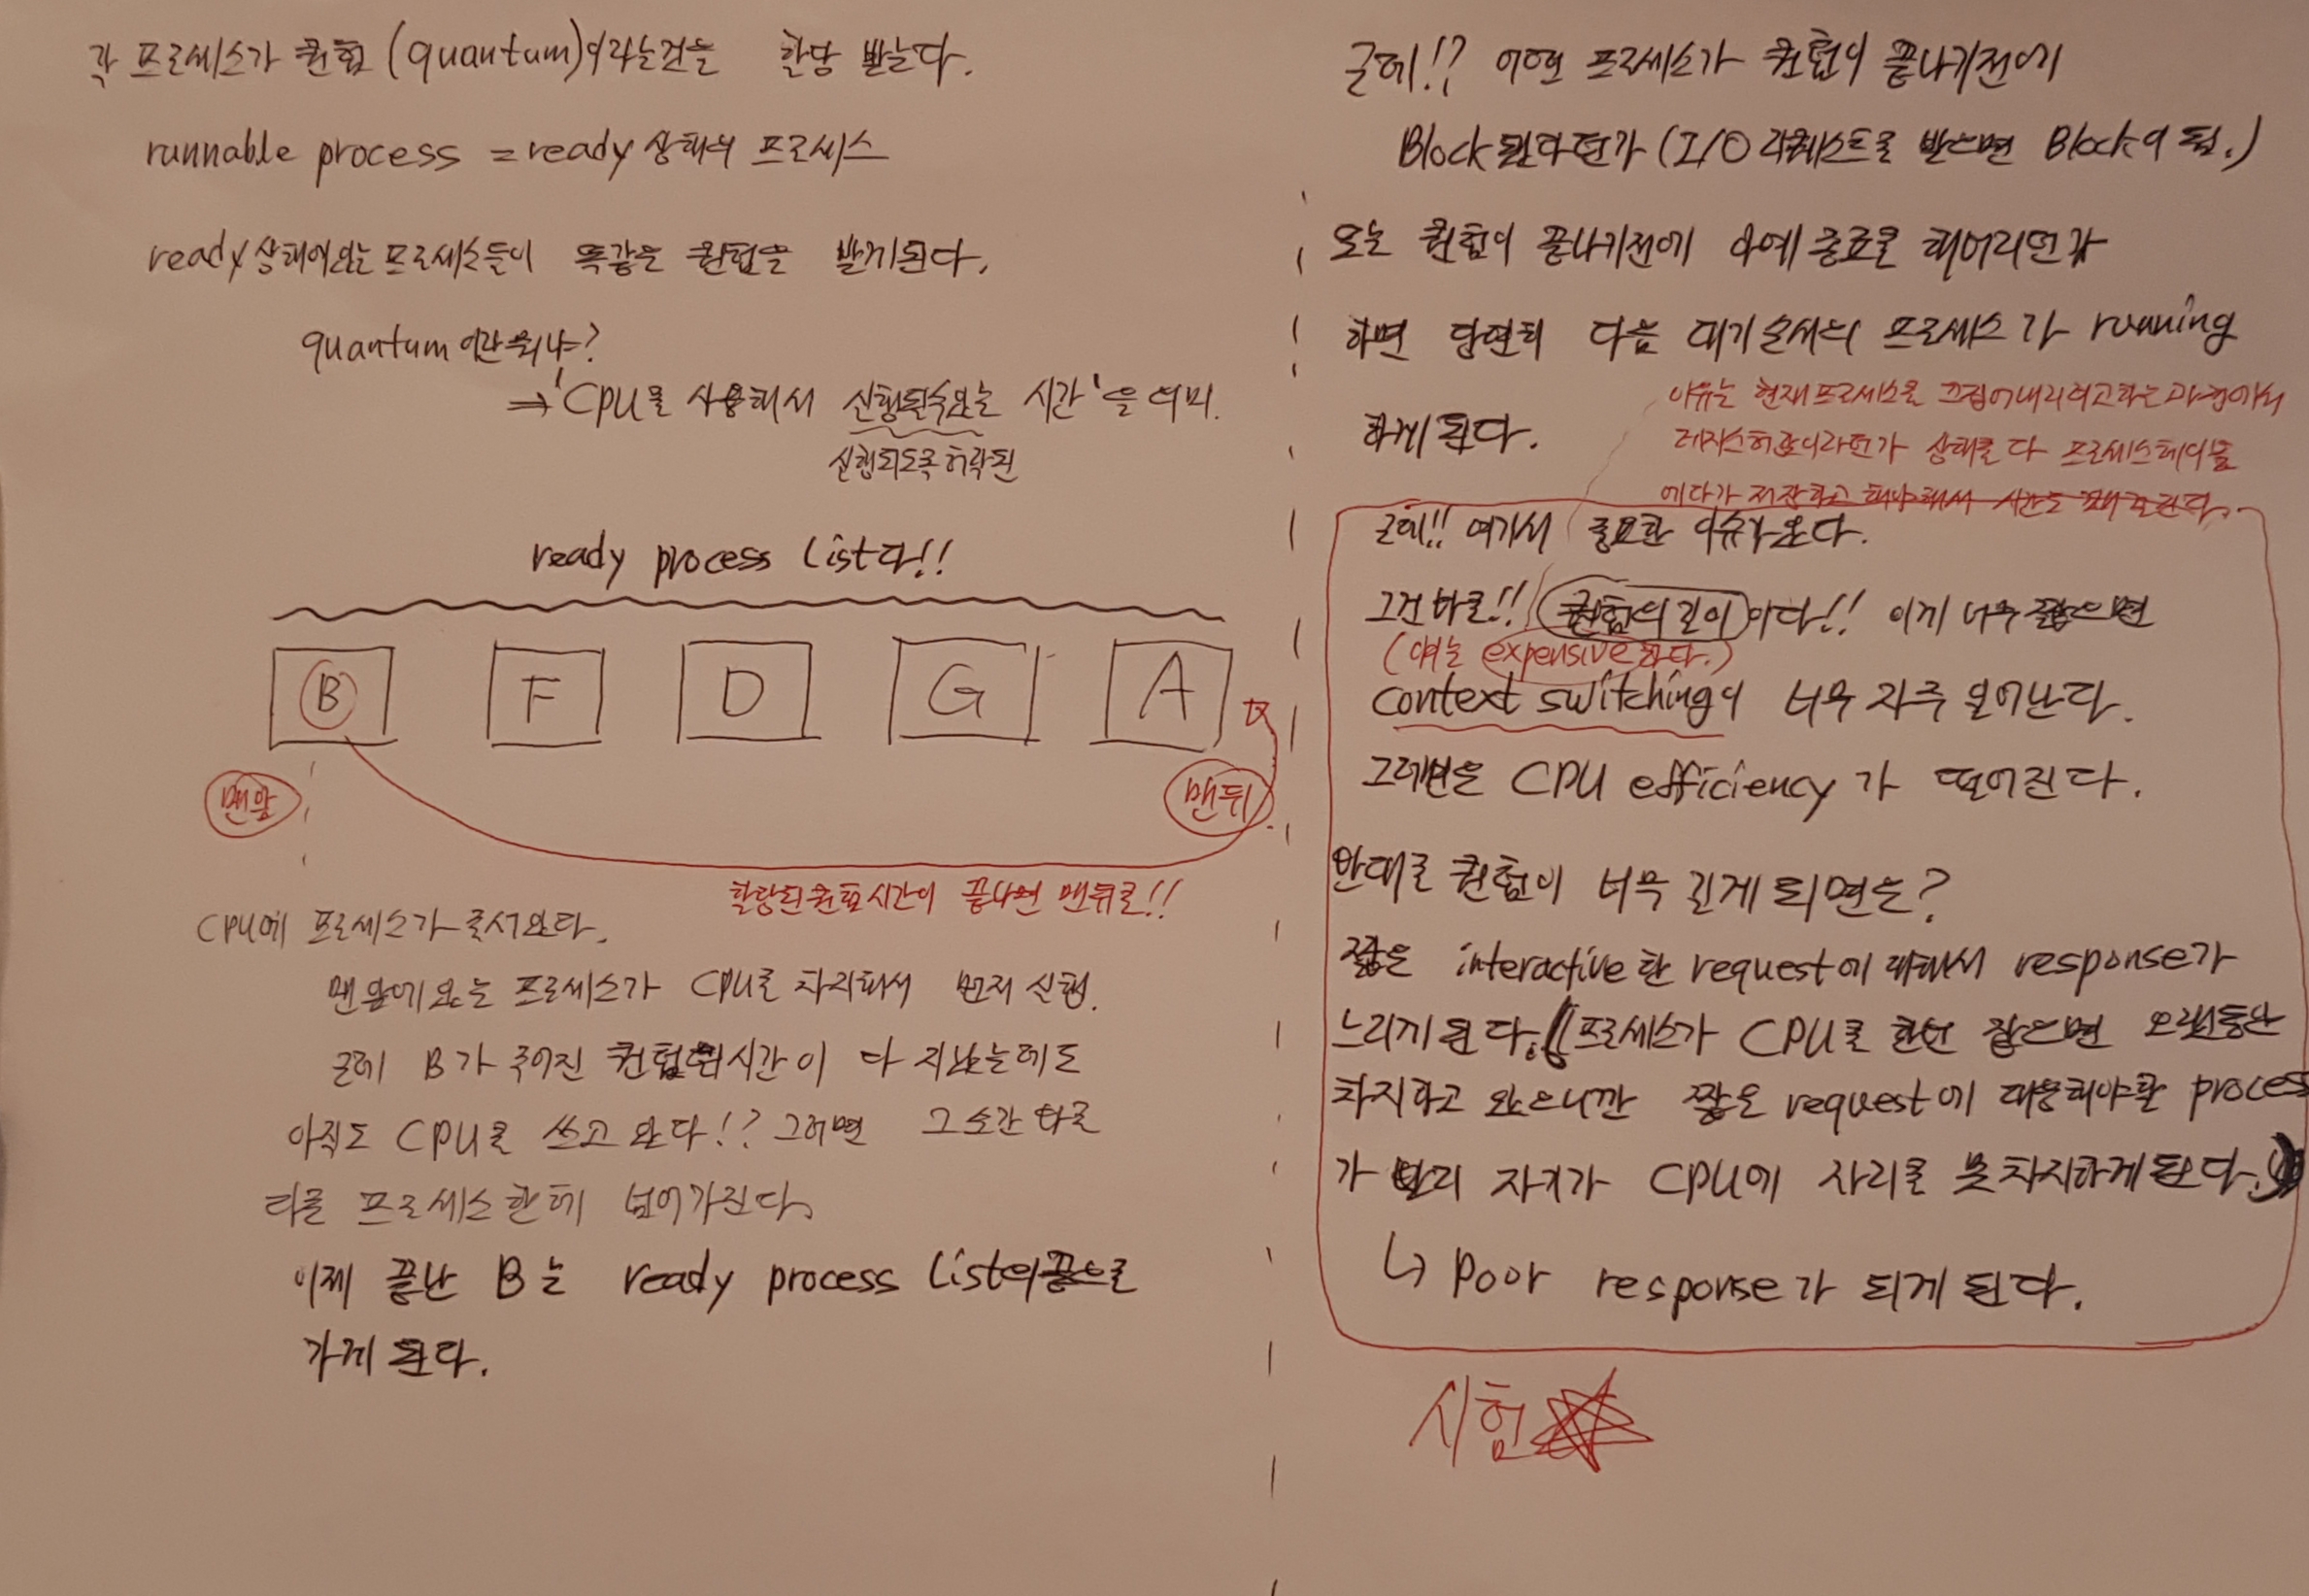 각 프로세스가 퀀텀 (quantum)이라는것을 할당 받는다.
runnable process = ready 상태의 프로세스
ready 상태에있는 프로세스들이 똑같은 퀀텀을 받게된다.
quantum 이란 뭐냐?
⇒ 'CPU를 사용해서 실행될수있는 시간'을 의미.
실행되도록 허락된
ready process list다!!
B F D G A
맨앞
맨뒤
할당된 퀀텀시간이 끝나면 맨뒤로!!
CPU에 프로세스가 줄서있다.
맨 앞에 있는 프로세스가 CPU를 차지해서 먼저 실행.
근데 B가 주어진 퀀텀 시간이 다 지났는데도
아직도 CPU를 쓰고 있다!? 그러면 그 순간 바로
다른 프로세스한테 넘어가진다.
이제 끝난 B는 ready process list의 끝으로
가게 된다.
근데!? 어떤 프로세스가 퀀텀이 끝나기전에
Block 된다던가 (I/O 리퀘스트를 받으면 Block이 됨.)
또는 퀀텀이 끝나기전에 아예 종료를 해버리던가
하면 당연히 다음 대기 순서의 프로세스가 running
하게 된다.
이유는 현재프로세스를 끄집어내리려고하는 과정에서
레지스터값이라던가 상태를 다 프로세스테이블
에다가 저장하고 해야해서 시간도 꽤 걸린다.
근데!! 여기서 중요한 이슈가있다.
그건 바로!! 퀀텀의 길이 이다!! 이게 너무 짧으면
(얘는 expensive 하다.)
context switching이 너무 자주 일어난다.
그러면은 CPU efficiency가 떨어진다.
반대로 퀀텀이 너무 길게 되면은?
짧은 interactive한 request에 대해서 response가
느리게 된다. (프로세스가 CPU를 한번 잡으면 오랫동안
차지하고 있으니깐 짧은 request에 대응해야할 process
가 빨리 자기가 CPU에 자리를 못차지하게된다.)
↳ poor response가 되게 된다.
시험